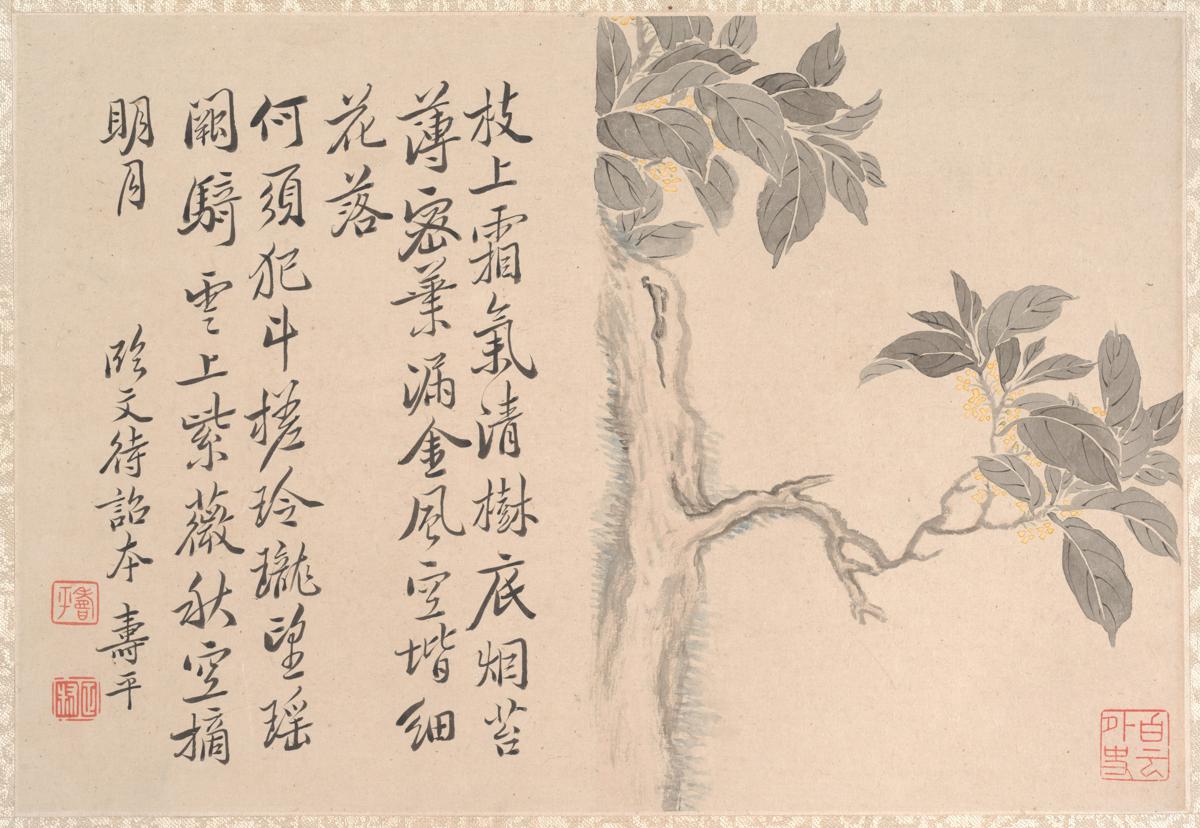 枝上霜氣清樹底烟苔
薄密葉漏金風空堦細
花落
何須犯斗槎玲瓏望瑤
闕騎雲上紫薇秋空摘
明月
臨文待詔本 壽平
壽平
白云外史